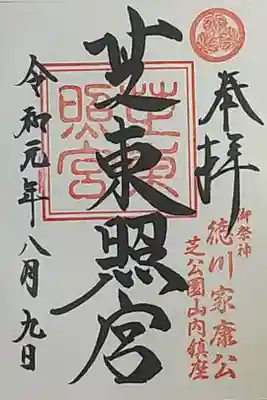 奉拝
御祭神
徳川家康公
芝公園山内鎮座
芝東照宮
芝東照宮
令和元年八月九日